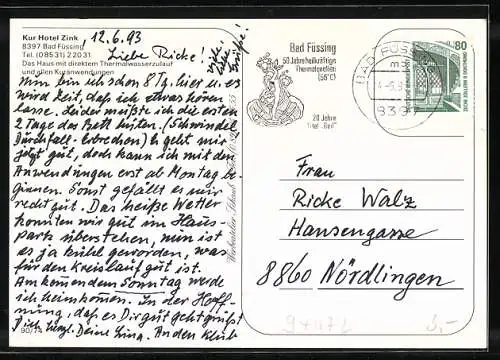 Kur Hotel Zink
8397 Bad Füssing
Tel. (08531) 22031
Das Haus mit direktem Thermalwasserzulauf
und allen Kuranwendungen
12.6.93
viele
liebe
Grüße!
Liebe Ricke!
Nun bin ich schon 8 Tg. hier u. es
wird Zeit, daß ich etwas hören
lasse. Leider mußte ich die ersten
2 Tage das Bett hüten. (Schwindel
Durchfall-Erbrechen) Es geht mir
jetzt gut, doch kann ich mit den
Anwendungen erst ab Montag be-
ginnen. Sonst gefällt es mir
recht gut. Das heiße Wetter
konnten wir gut im Haus-
park überstehen, nun ist
es ja kühl geworden, was
für den Kreislauf gut ist.
Am kommendem Sonntag werde
ich heimkommen. In der Hoff-
nung, daß es Dir gut geht grüßt
Dich Deine An den Klub
90/74
Bad Füssing
50 Jahre heilkräftiges
Thermalquellen
(56°C)
20 Jahre
BAD FÜSSING
8397
80
Frau
Ricke Walz
Hansengasse
8860 Nördlingen
3,-